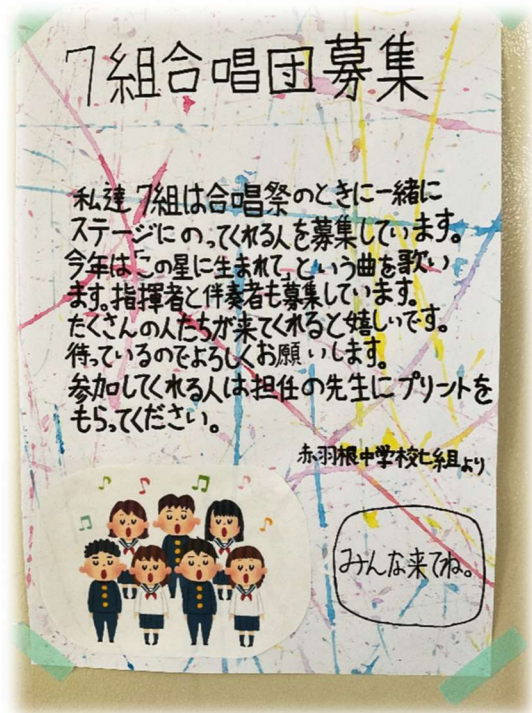 7組合唱団募集
私達 7組は合唱祭のときに一緒に
ステージにのってくれる人を募集しています。
今年は「この星に生まれて」という曲を歌い
ます。指揮者と伴奏者も募集しています。
たくさんの人たちが来てくれると嬉しいです。
待っているのでよろしくお願いします。
参加してくれる人は担任の先生にプリントを
もらってください。
赤羽根中学校七組より
みんな来てね。